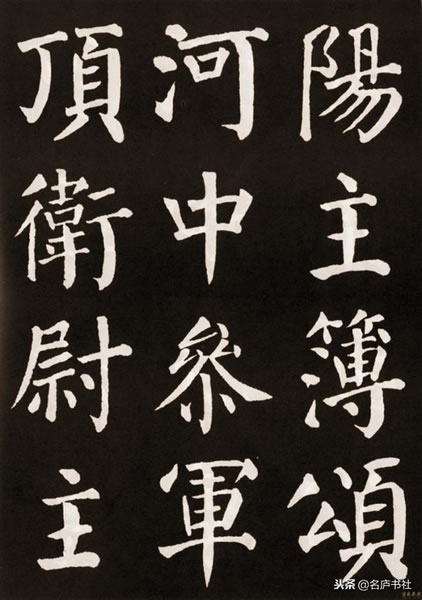 陽主簿頌
河中參軍
頂衛尉主
头条@名庐书社